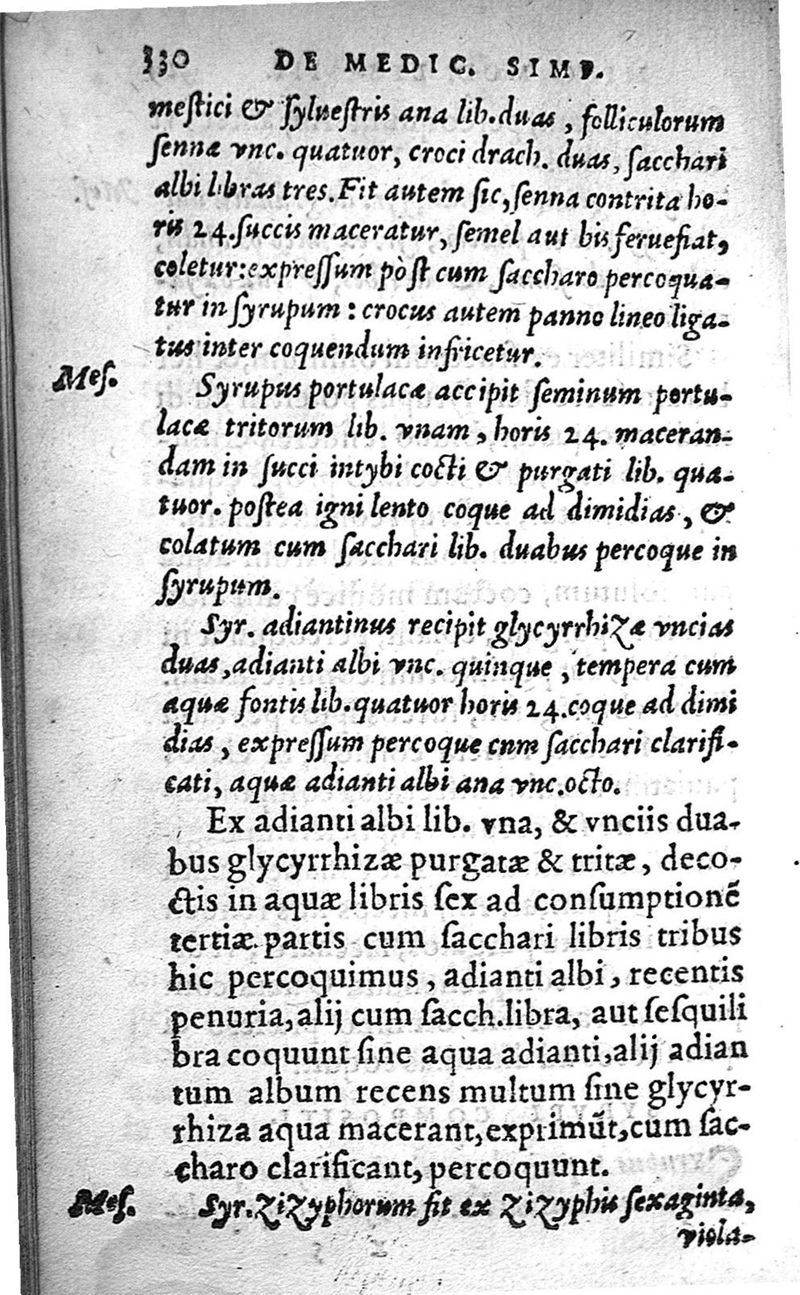 330 DE MEDIC. SIMP.
mestici & sylvestris ana lib.duas, folliculorum
sennæ vnc. quatuor, croci drach. duas, sacchari
albi libras tres. Fit autem sic, senna contrita ho-
ris 24. succis maceratur, semel aut bis feruefiat,
coletur: expressum pòst cum saccharo percoqua-
tur in syrupum: crocus autem panno lineo liga-
tus inter coquendum infricetur.
Mes. Syrupus portulacæ accipit seminum portu-
lacæ tritorum lib. vnam, horis 24. maceran-
dam in succi intybi cocti & purgati lib. qua-
tuor. postea igni lento coque ad dimidias, &
colatum cum sacchari lib. duabus percoque in
syrupum.
Syr. adiantinus recipit glycyrrhizæ vncias
duas, adianti albi vnc. quinque, tempera cum
aquæ fontis lib. quatuor horis 24. coque ad dimi
dias, expressum percoque cnm sacchari clarifi-
cati, aquæ adianti albi ana vnc. octo.
Ex adianti albi lib. vna, & vnciis dua-
bus glycyrrhizæ purgatæ & tritæ, deco-
ctis in aquæ libris sex ad consumptionē
tertiæ partis cum sacchari libris tribus
hic percoquimus, adianti albi, recentis
penuria, alij cum sacch. libra, aut sesquili
bra coquunt sine aqua adianti, alij adian
tum album recens multum sine glycyr-
rhiza aqua macerant, exprimūt, cum sac-
charo clarificant, percoquunt.
Mes. Syr. Zizyphorum fit ex Zizyphis sexaginta,
viola-